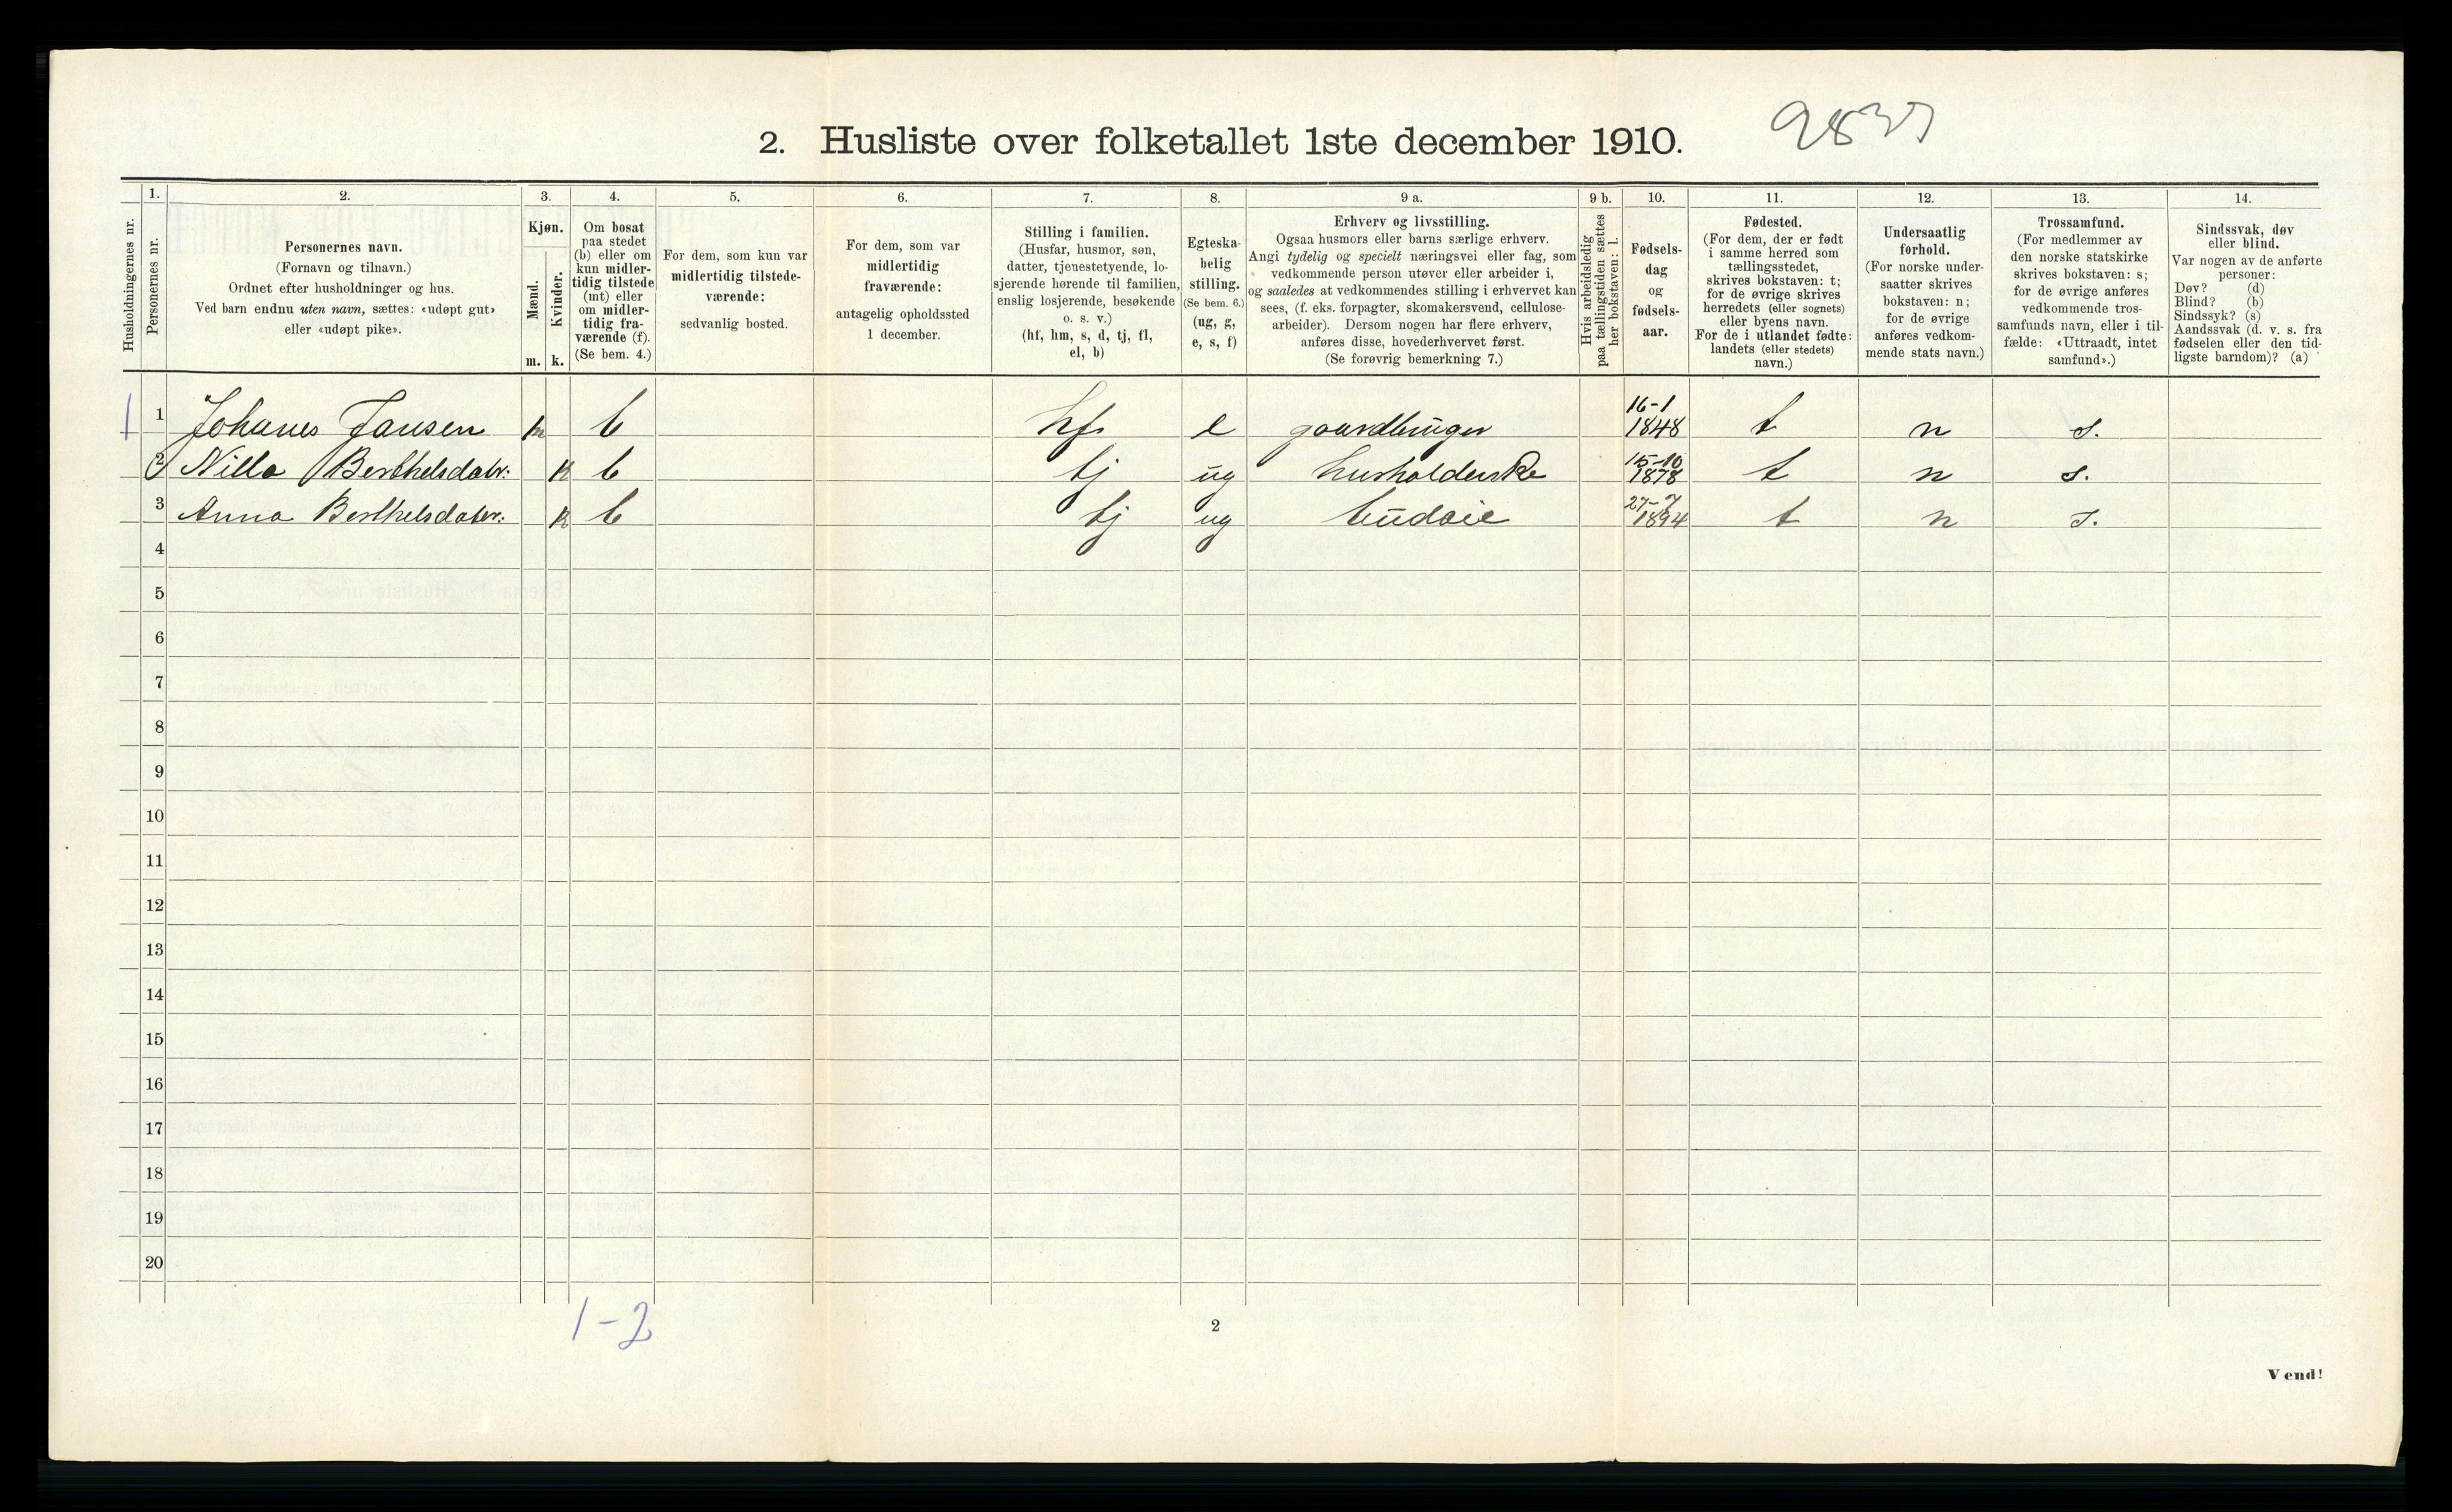 2. Husliste over folketallet 1ste december 1910.
Husholdningernes nr.
1.
Personernes nr.
2.
Personernes navn.
(Fornavn og tilnavn.)
Ordnet efter husholdninger og hus.
Ved barn endnu uten navn, sættes: «udøpt gut»
eller «udøpt pike».
3.
Kjøn.
Mænd.
Kvinder.
m. k.
4.
Om bosat
paa stedet
(b) eller om
kun midler-
tidig tilstede
(mt) eller
om midler-
tidig fra-
værende (f).
(Se bem. 4.)
5.
For dem, som kun var
midlertidig tilstede-
værende:
sedvanlig bosted.
6.
For dem, som var
midlertidig
fraværende:
antagelig opholdssted
1 december.
7.
Stilling i familien.
(Husfar, husmor, søn,
datter, tjenestetyende, lo-
sjerende hørende til familien,
enslig losjerende, besøkende
o. s. v.)
(hf, hm, s, d, tj, fl,
el, b)
8.
Egteska-
belig
stilling.
(Se bem. 6.)
(ug, g,
e, s, f)
9 a.
Erhverv og livsstilling.
Ogsaa husmors eller barns særlige erhverv.
Angi tydelig og specielt næringsvei eller fag, som
vedkommende person utøver eller arbeider i,
og saaledes at vedkommendes stilling i erhvervet kan
sees, (f. eks. forpagter, skomakersvend, cellulose-
arbeider). Dersom nogen har flere erhverv,
anføres disse, hovederhvervet først.
(Se forøvrig bemerkning 7.)
9 b.
Hvis arbeidsledig
paa tællingstiden sættes
her bokstaven: l.
10.
Fødsels-
dag
og
fødsels-
aar.
11.
Fødested.
(For dem, der er født
i samme herred som
tællingsstedet,
skrives bokstaven: t;
for de øvrige skrives
herredets (eller sognets)
eller byens navn.
For de i utlandet fødte:
landets (eller stedets)
navn.)
12.
Undersaatlig
forhold.
(For norske under-
saatter skrives
bokstaven: n;
for de øvrige
anføres vedkom-
mende stats navn.)
13.
Trossamfund.
(For medlemmer av
den norske statskirke
skrives bokstaven: s;
for de øvrige anføres
vedkommende tros-
samfunds navn, eller i til-
fælde: «Uttraadt, intet
samfund».)
14.
Sindssvak, døv
eller blind.
Var nogen av de anførte
personer:
Døv? (d)
Blind? (b)
Sindssyk? (s)
Aandssvak (d. v. s. fra
fødselen eller den tid-
ligste barndom)? (a)
1 1 Johanes Jansen m b hf. e gaardbruger 16-1 1848 t n s.
2 Nilla Berthelsdatr: k b tj ug husholderske 15-10 1878 t n s.
3 Anna Berthelsdater: k b tj ug budeie 27-7 1894 t n s.
4
5
6
7
8
9
10
11
12
13
14
15
16
17
18
19
20
1-2
2
Vend!